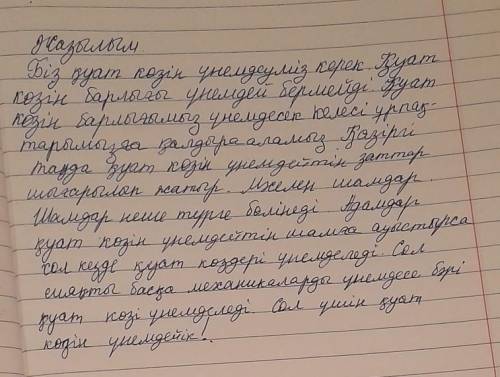 Жазылым.
Біз қуат көзін үнемдеуміз керек. Қуат
көзін барлығы үнемдей бермейді. Қуат
көзін барлығымыз үнемдесек келесі ұрпақ-
тарымызда қалдыра аламыз. Қазіргі
таңда қуат көзін үнемдейтін заттар
шығарылап жатыр. Мәселен шамдар.
Шамдар неше түрге бөлінеді. Адамдар
қуат көзін үнемдейтін шамға ауыстырса
сол кезде қуат көздері үнемделеді. Сол
сияқты басқа механикаларды үнемдесе бәрі
қуат көзі үнемделеді. Сол үшін қуат
көзін үнемдейік!